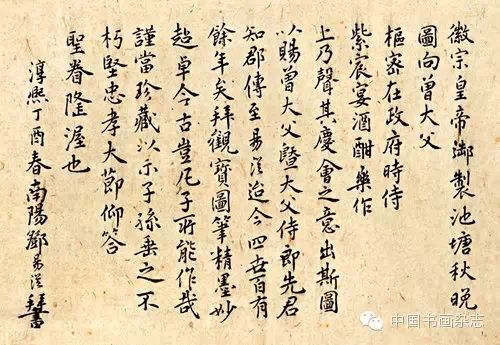 徽宗皇帝御製池塘秋晚
圖向曾大父
樞密在政府時侍
紫宸宴酒酣樂作
上乃聲其慶會之意出斯圖
以賜曾大父暨大父侍郎先君
知郡傳至易從迨今四世百有
餘年矣拜觀寶圖筆精墨妙
超卓今古豈凡子所能作哉
謹當珍藏以示子孫垂之不
朽堅忠孝大節仰答
聖眷隆渥也
淳熙丁酉春南陽鄧易從拜書
中国书画杂志